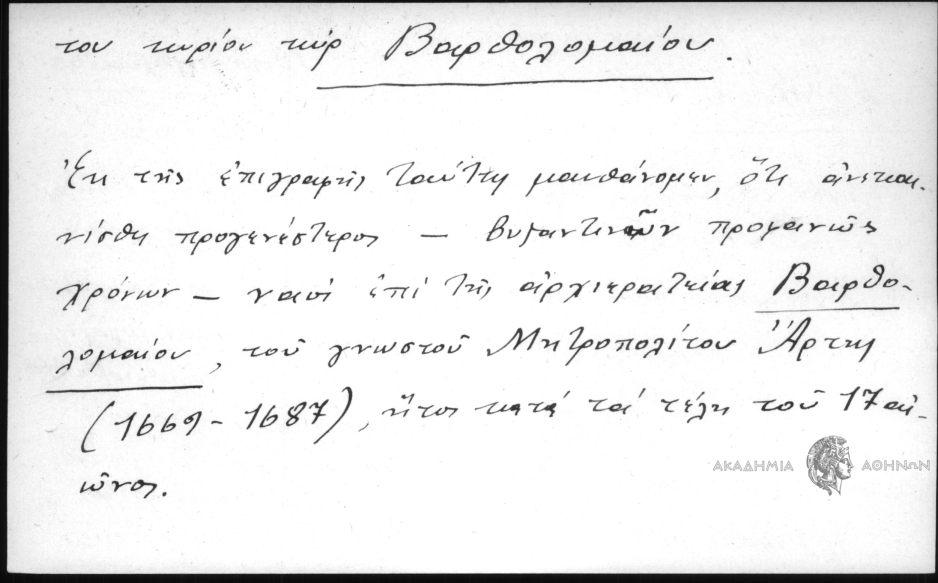 του κυρίου κύρ Βαρθολομαίου.
Ἐκ τῆς ἐπιγραφῆς ταύτης μανθάνομεν, ὅτι ἀνεκαι-
νίσθη προγενέστερος — βυζαντινῶν προφανῶς
χρόνων — ναὸς ἐπὶ τῆς ἀρχιερατείας Βαρθο-
λομαίου, τοῦ γνωστοῦ Μητροπολίτου Ἄρτης
(1669 - 1687), ἤτοι κατά τά τέλη τοῦ 17 αἰ-
ῶνος.
ΑΚΑΔΗΜΙΑ ΑΘΗΝΩΝ